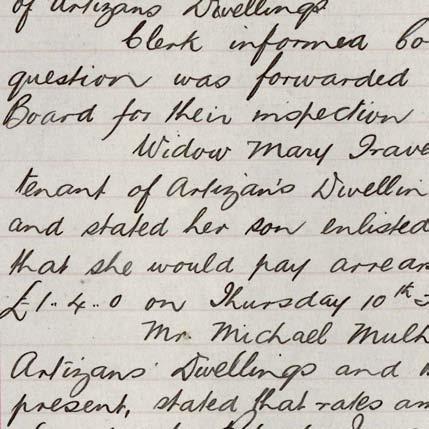 of Artizans Dwellings.
Clerk informed Co
question was forwarded
Board for their inspection
Widow Mary Trave
tenant of Artizan's Dwellin
and stated her son enlisted
that she would pay arrear
£1..4..0 on Thursday 10th
Mr. Michael Mulh
Artizans' Dwellings and
present, stated that rates an